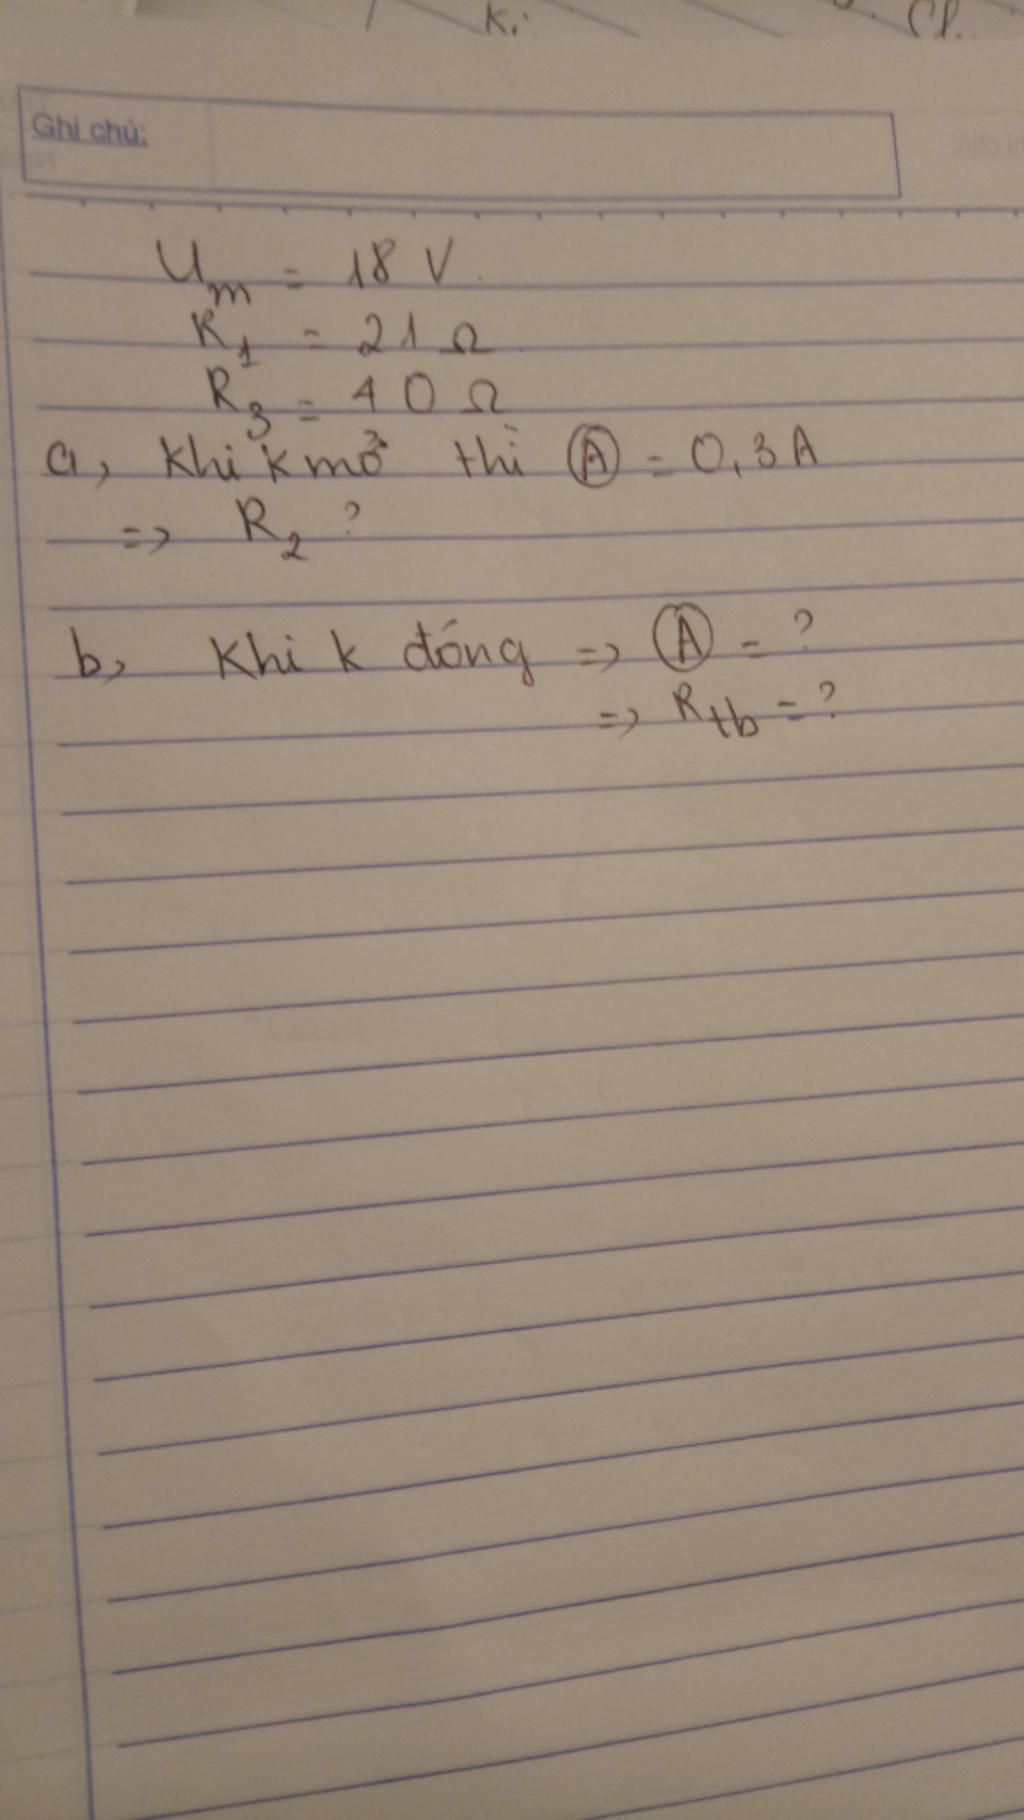 K.
Ghi chú:
Um = 18 V
R1 = 21 Ω
R3 = 40 Ω
a, Khi k mở thì Ⓐ = 0,3A
=> R2 ?
b, Khi k đóng => Ⓐ = ?
=> Rtb = ?